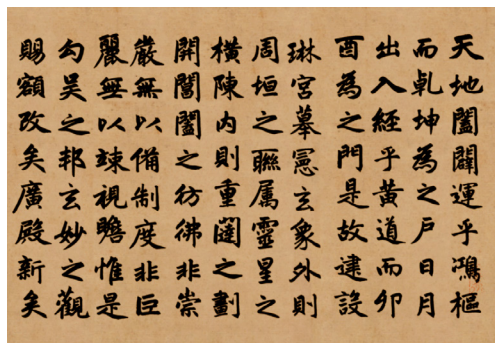 天地闔闢運乎鴻樞
而乾坤為之戶日月
出入經乎黃道而卯
酉為之門是故建設
琳宮摹憲玄象外則
周垣之聯屬靈星之
橫陳内則重闥之劃
開閶闔之彷彿非崇
嚴無以備制度非巨
麗無以竦視瞻惟是
勾吳之邦玄妙之觀
賜額改矣廣殿新矣